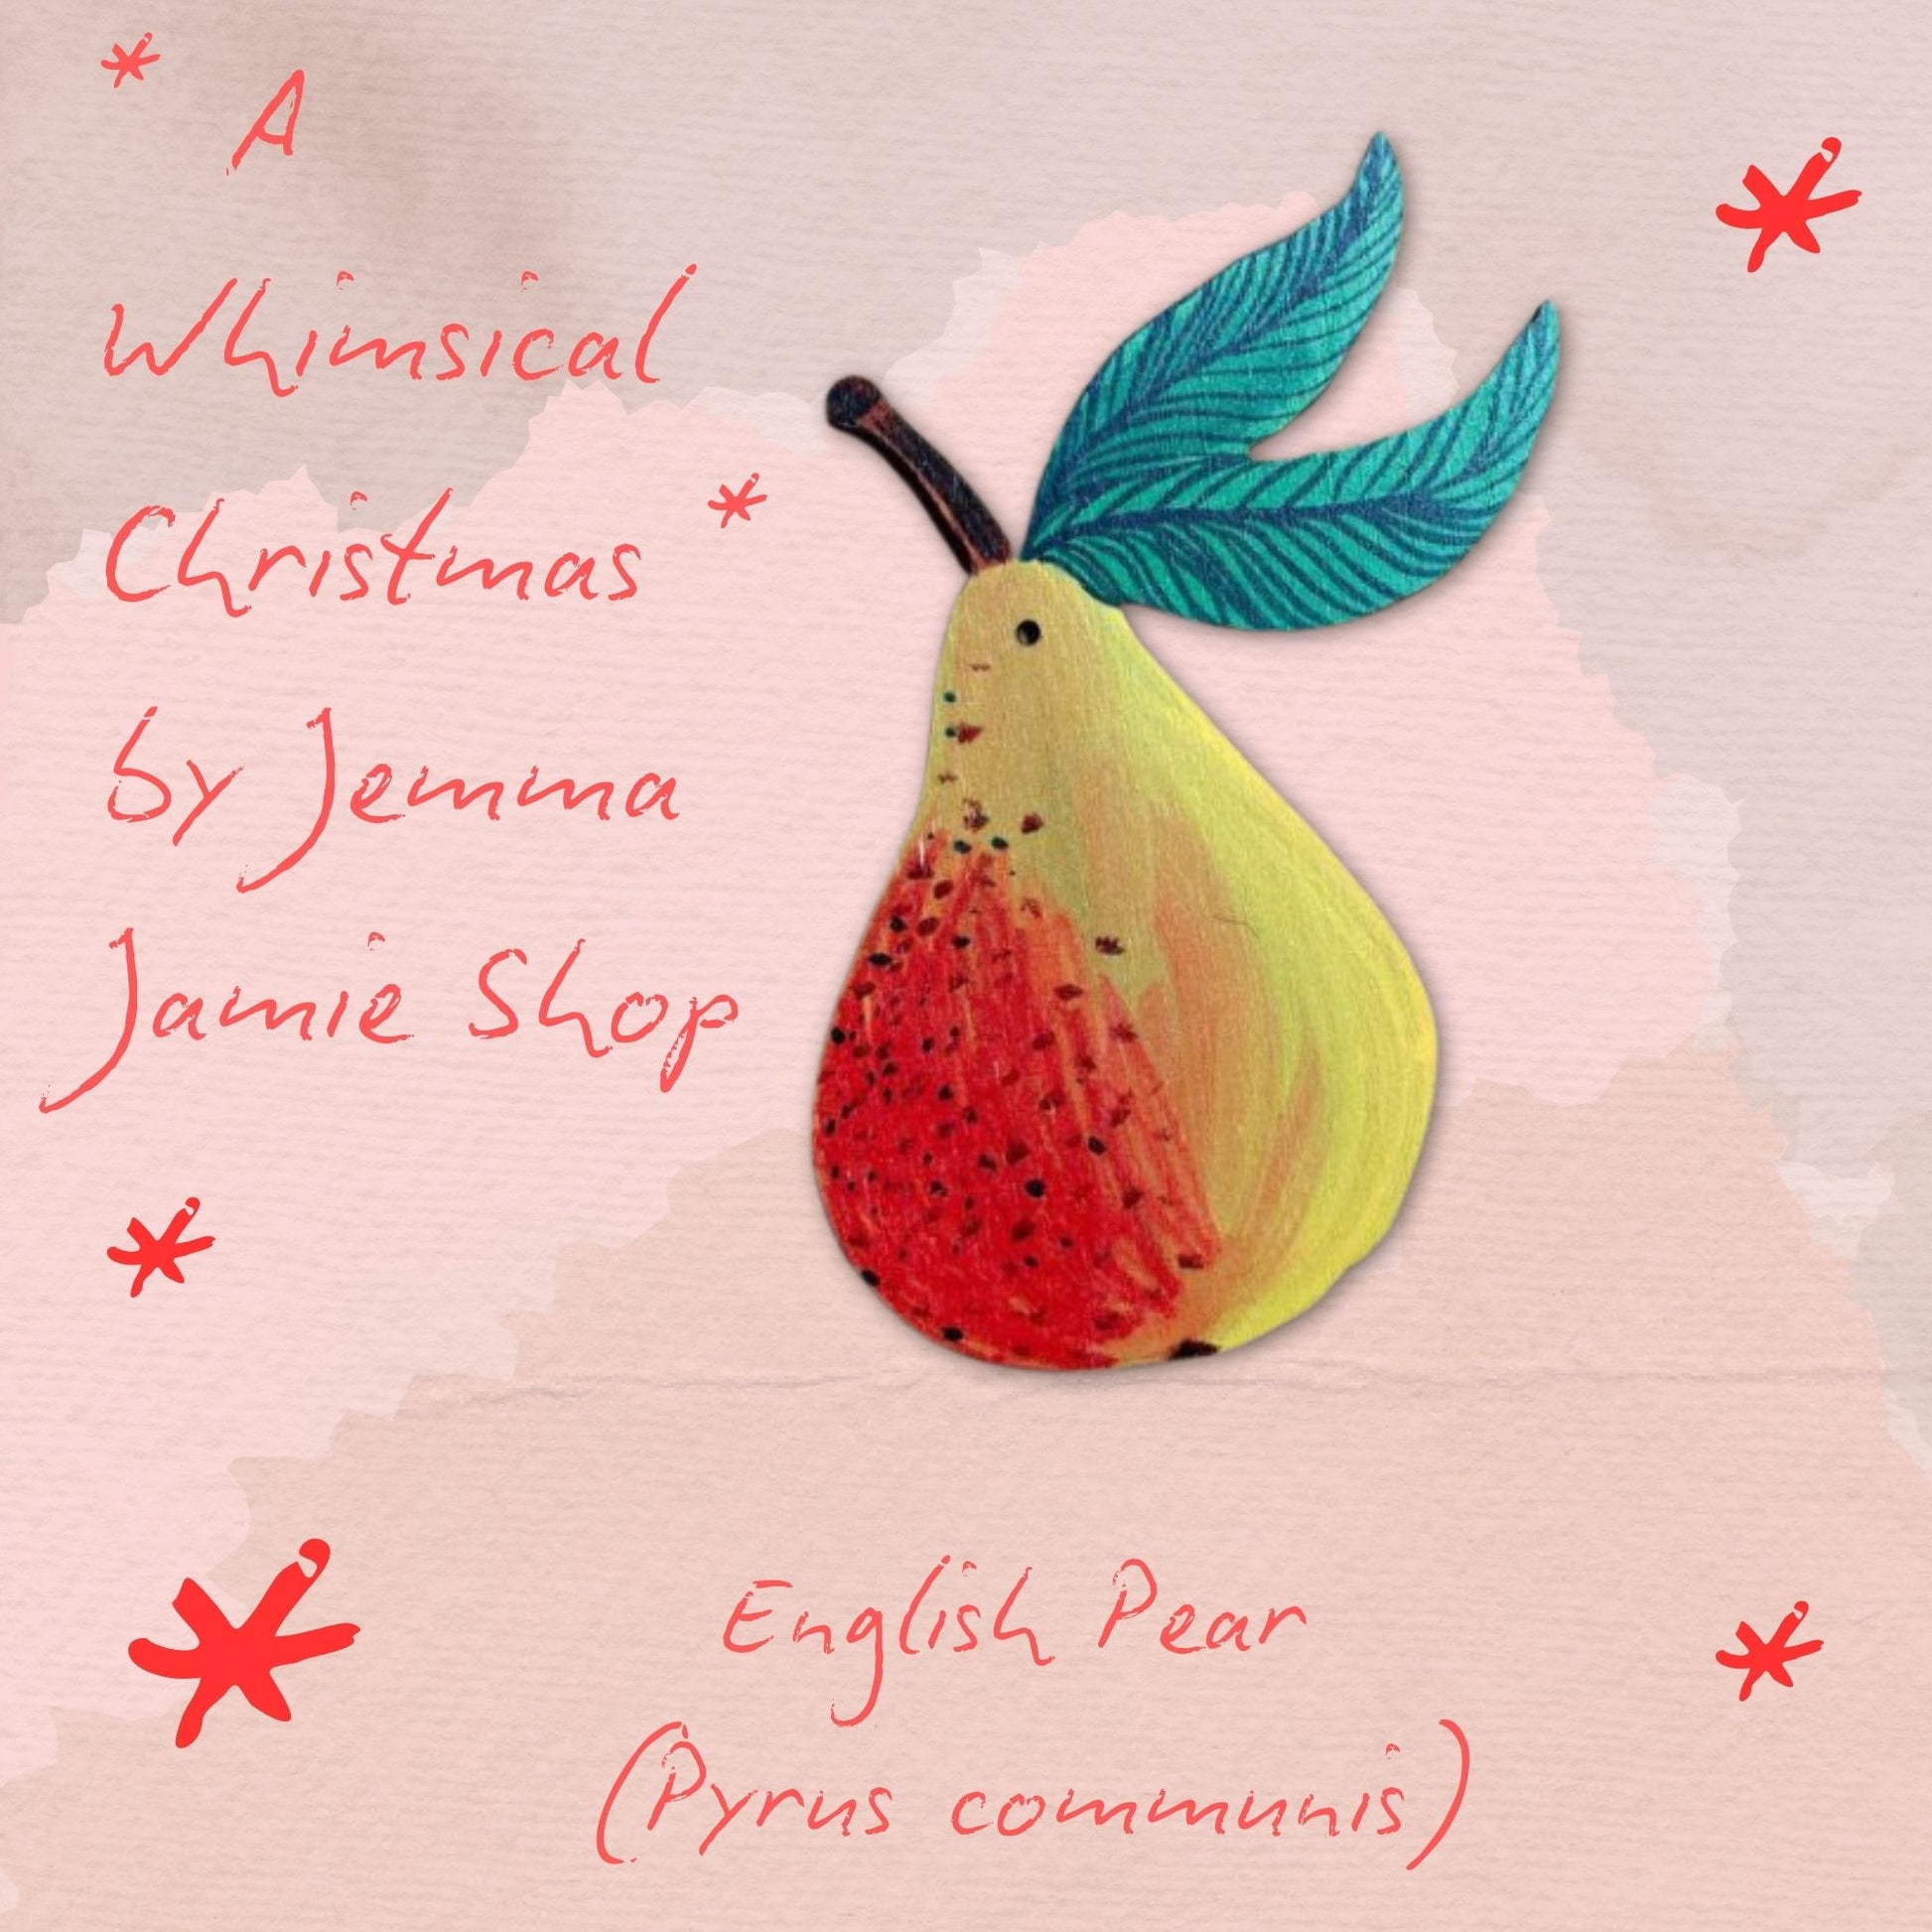 A
Whimsical
Christmas
by Jemma
Jamie Shop
English Pear
(Pyrus communis)